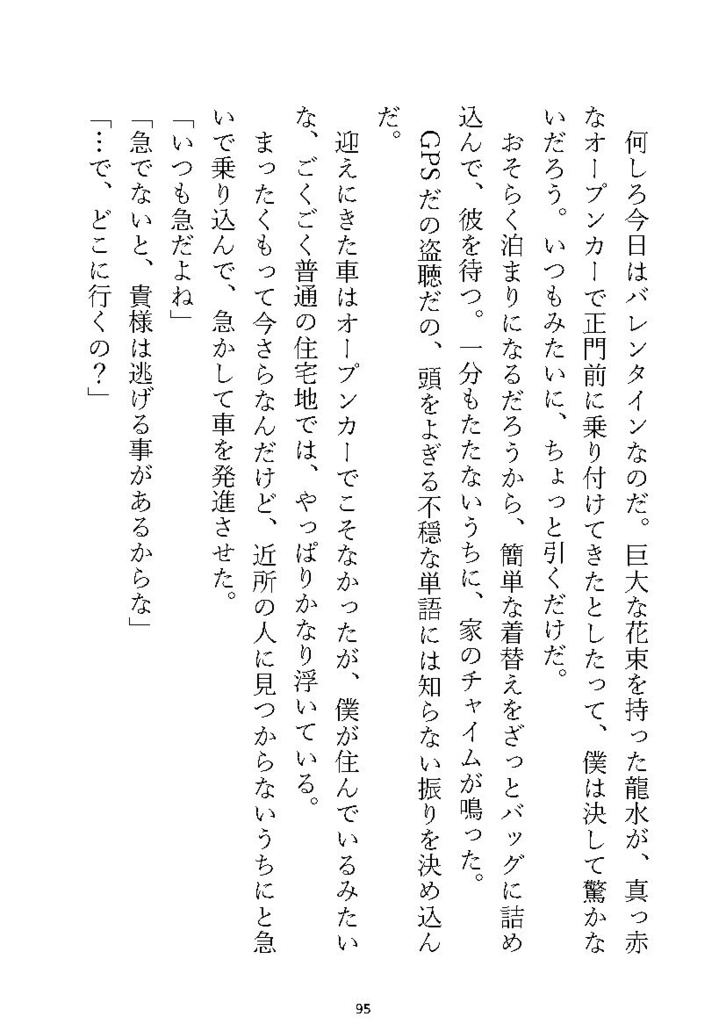 何しろ今日はバレンタインなのだ。巨大な花束を持った龍水が、真っ赤
なオープンカーで正門前に乗り付けてきたとしたって、僕は決して驚かな
いだろう。いつもみたいに、ちょっと引くだけだ。
おそらく泊まりになるだろうから、簡単な着替えをざっとバッグに詰め
込んで、彼を待つ。一分もたたないうちに、家のチャイムが鳴った。
GPSだの盗聴だの、頭をよぎる不穏な単語には知らない振りを決め込ん
だ。
迎えにきた車はオープンカーでこそなかったが、僕が住んでいるみたい
な、ごくごく普通の住宅地では、やっぱりかなり浮いている。
まったくもって今さらなんだけど、近所の人に見つからないうちにと急
いで乗り込んで、急かして車を発進させた。
「いつも急だよね」
「急でないと、貴様は逃げる事があるからな」
「…で、どこに行くの？」
95